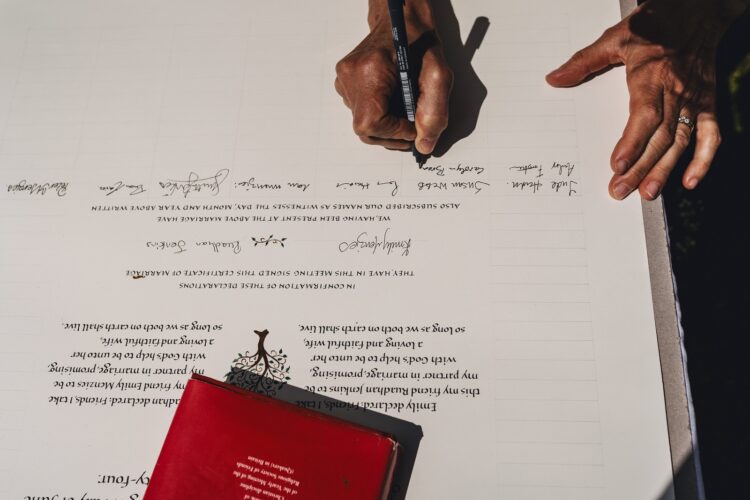 of June
cy-four.
Emily declared: Friends, I take
this my friend Ruadhan Jenkins to be
my partner in marriage, promising,
with God's help to be unto her
a loving and faithful wife,
so long as we both on earth shall live.
declared: Friends, I take
my friend Emily Menzies to be
my partner in marriage, promising,
with God's help to be unto her
a loving and faithful wife,
so long as we both on earth shall live.
IN CONFIRMATION OF THESE DECLARATIONS
THEY HAVE IN THIS MEETING SIGNED THIS CERTIFICATE OF MARRIAGE
Emily Menzies Ruadhan Jenkins
WE, HAVING BEEN PRESENT AT THE ABOVE MARRIAGE HAVE
ALSO SUBSCRIBED OUR NAMES AS WITNESSES THE DAY, MONTH AND YEAR ABOVE WRITTEN
Susan Webb Ian Menzies
Carolyn Brown
Christian discipline
of the Yearly Meeting of the
Religious Society of Friends
(Quakers) in Britain